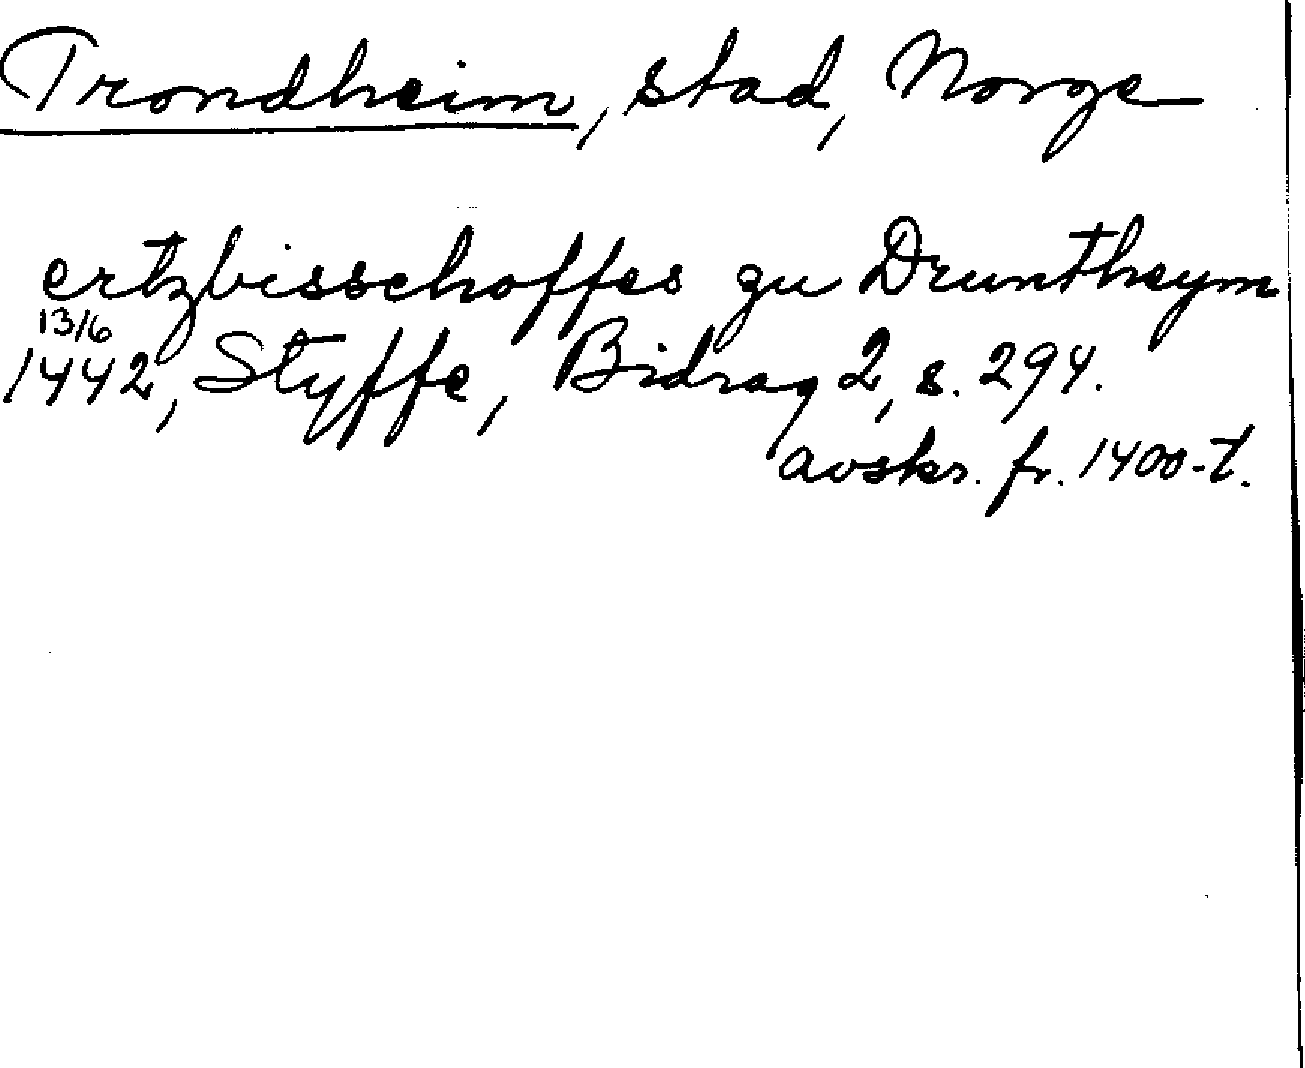 Trondheim, stad, Norge
ertzbisschoffes zu Druntheym
13/6
1442, Styffe, Bidrag 2, s. 294.
avskr. fr. 1400-t.